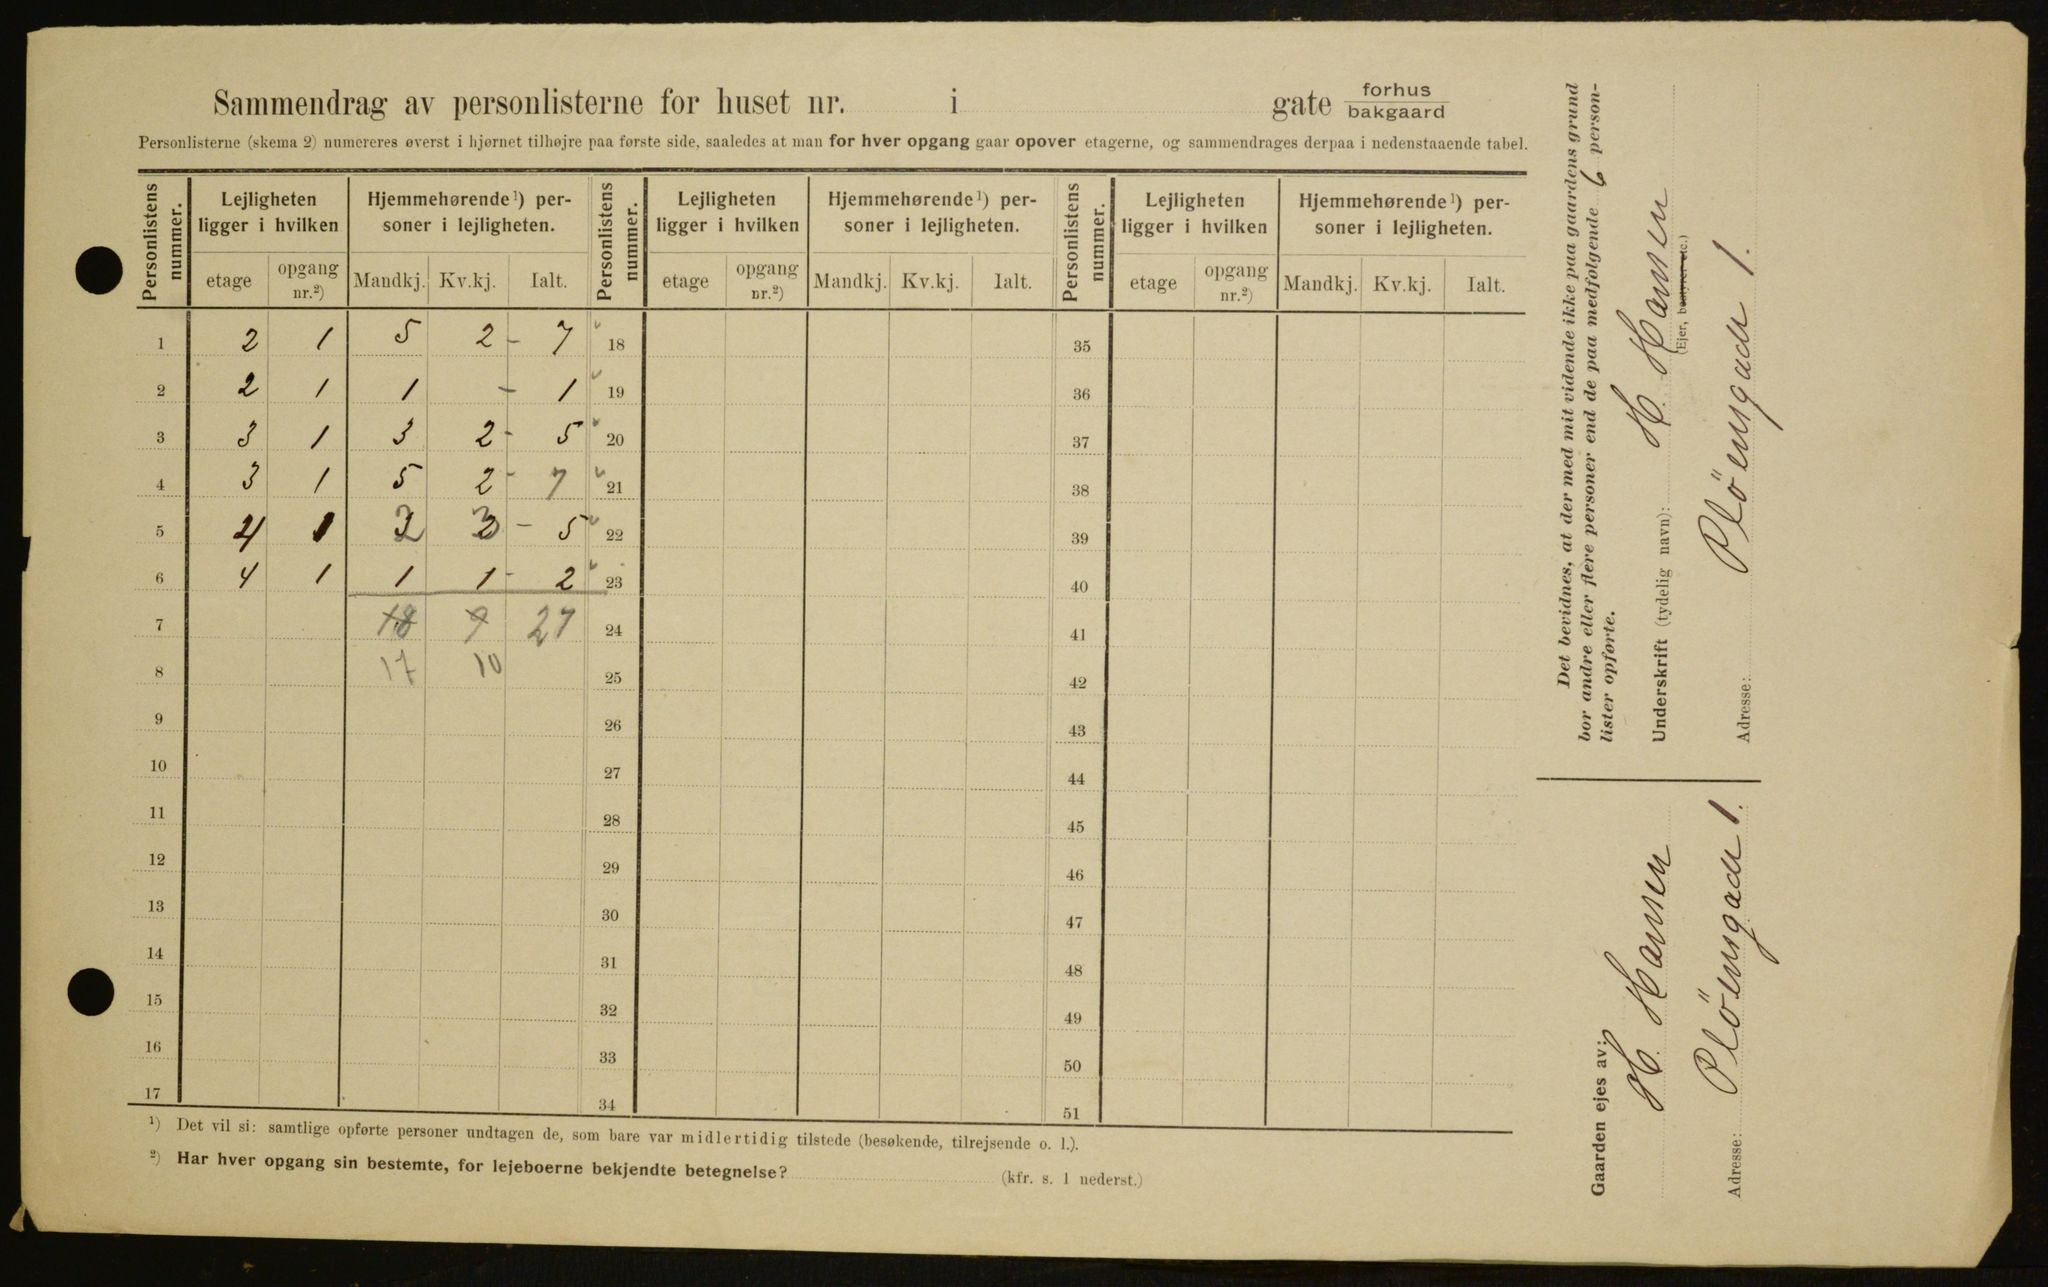 Sammendrag av personlisterne for huset nr. i gate forhus
bakgaard
Personlisterne (skema 2) numereres øverst i hjørnet tilhøjre paa første side, saaledes at man for hver opgang gaar opover etagerne, og sammendrages derpaa i nedenstaaende tabel.
Personlistens nummer. Lejligheten ligger i hvilken Hjemmehørende ¹) personer i lejligheten. Personlistens nummer. Lejligheten ligger i hvilken Hjemmehørende ¹) personer i lejligheten. Personlistens nummer. Lejligheten ligger i hvilken Hjemmehørende ¹) personer i lejligheten.
etage opgang nr.²) Mandkj. Kv.kj. Ialt. etage opgang nr.²) Mandkj. Kv.kj. Ialt. etage opgang nr.²) Mandkj. Kv.kj. Ialt.
1 2 1 5 2 - 7 18 35
2 2 1 1 - 1 19 36
3 3 1 3 2 - 5 20 37
4 3 1 5 2 - 7 21 38
5 4 1 2 3 - 5 22 39
6 4 1 1 1 - 2 23 40
7 18 9 27 24 41
8 17 10 25 42
9 26 43
10 27 44
11 28 45
12 29 46
13 30 47
14 31 48
15 32 49
16 33 50
17 34 51
¹) Det vil si: samtlige opførte personer undtagen de, som bare var midlertidig tilstede (besøkende, tilrejsende o. l.).
²) Har hver opgang sin bestemte, for lejeboerne bekjendte betegnelse? (kfr. s. 1 nederst.)
Det bevidnes, at der med mit vidende ikke paa gaardens grund
bor andre eller flere personer end de paa medfølgende 6 person-
lister opførte.
Underskrift (tydelig navn): H. Hansen
(Ejer, bestyrer etc.)
Adresse: Plöensgade 1.
Gaarden ejes av:
H. Hansen
Adresse: Plöensgade 1.